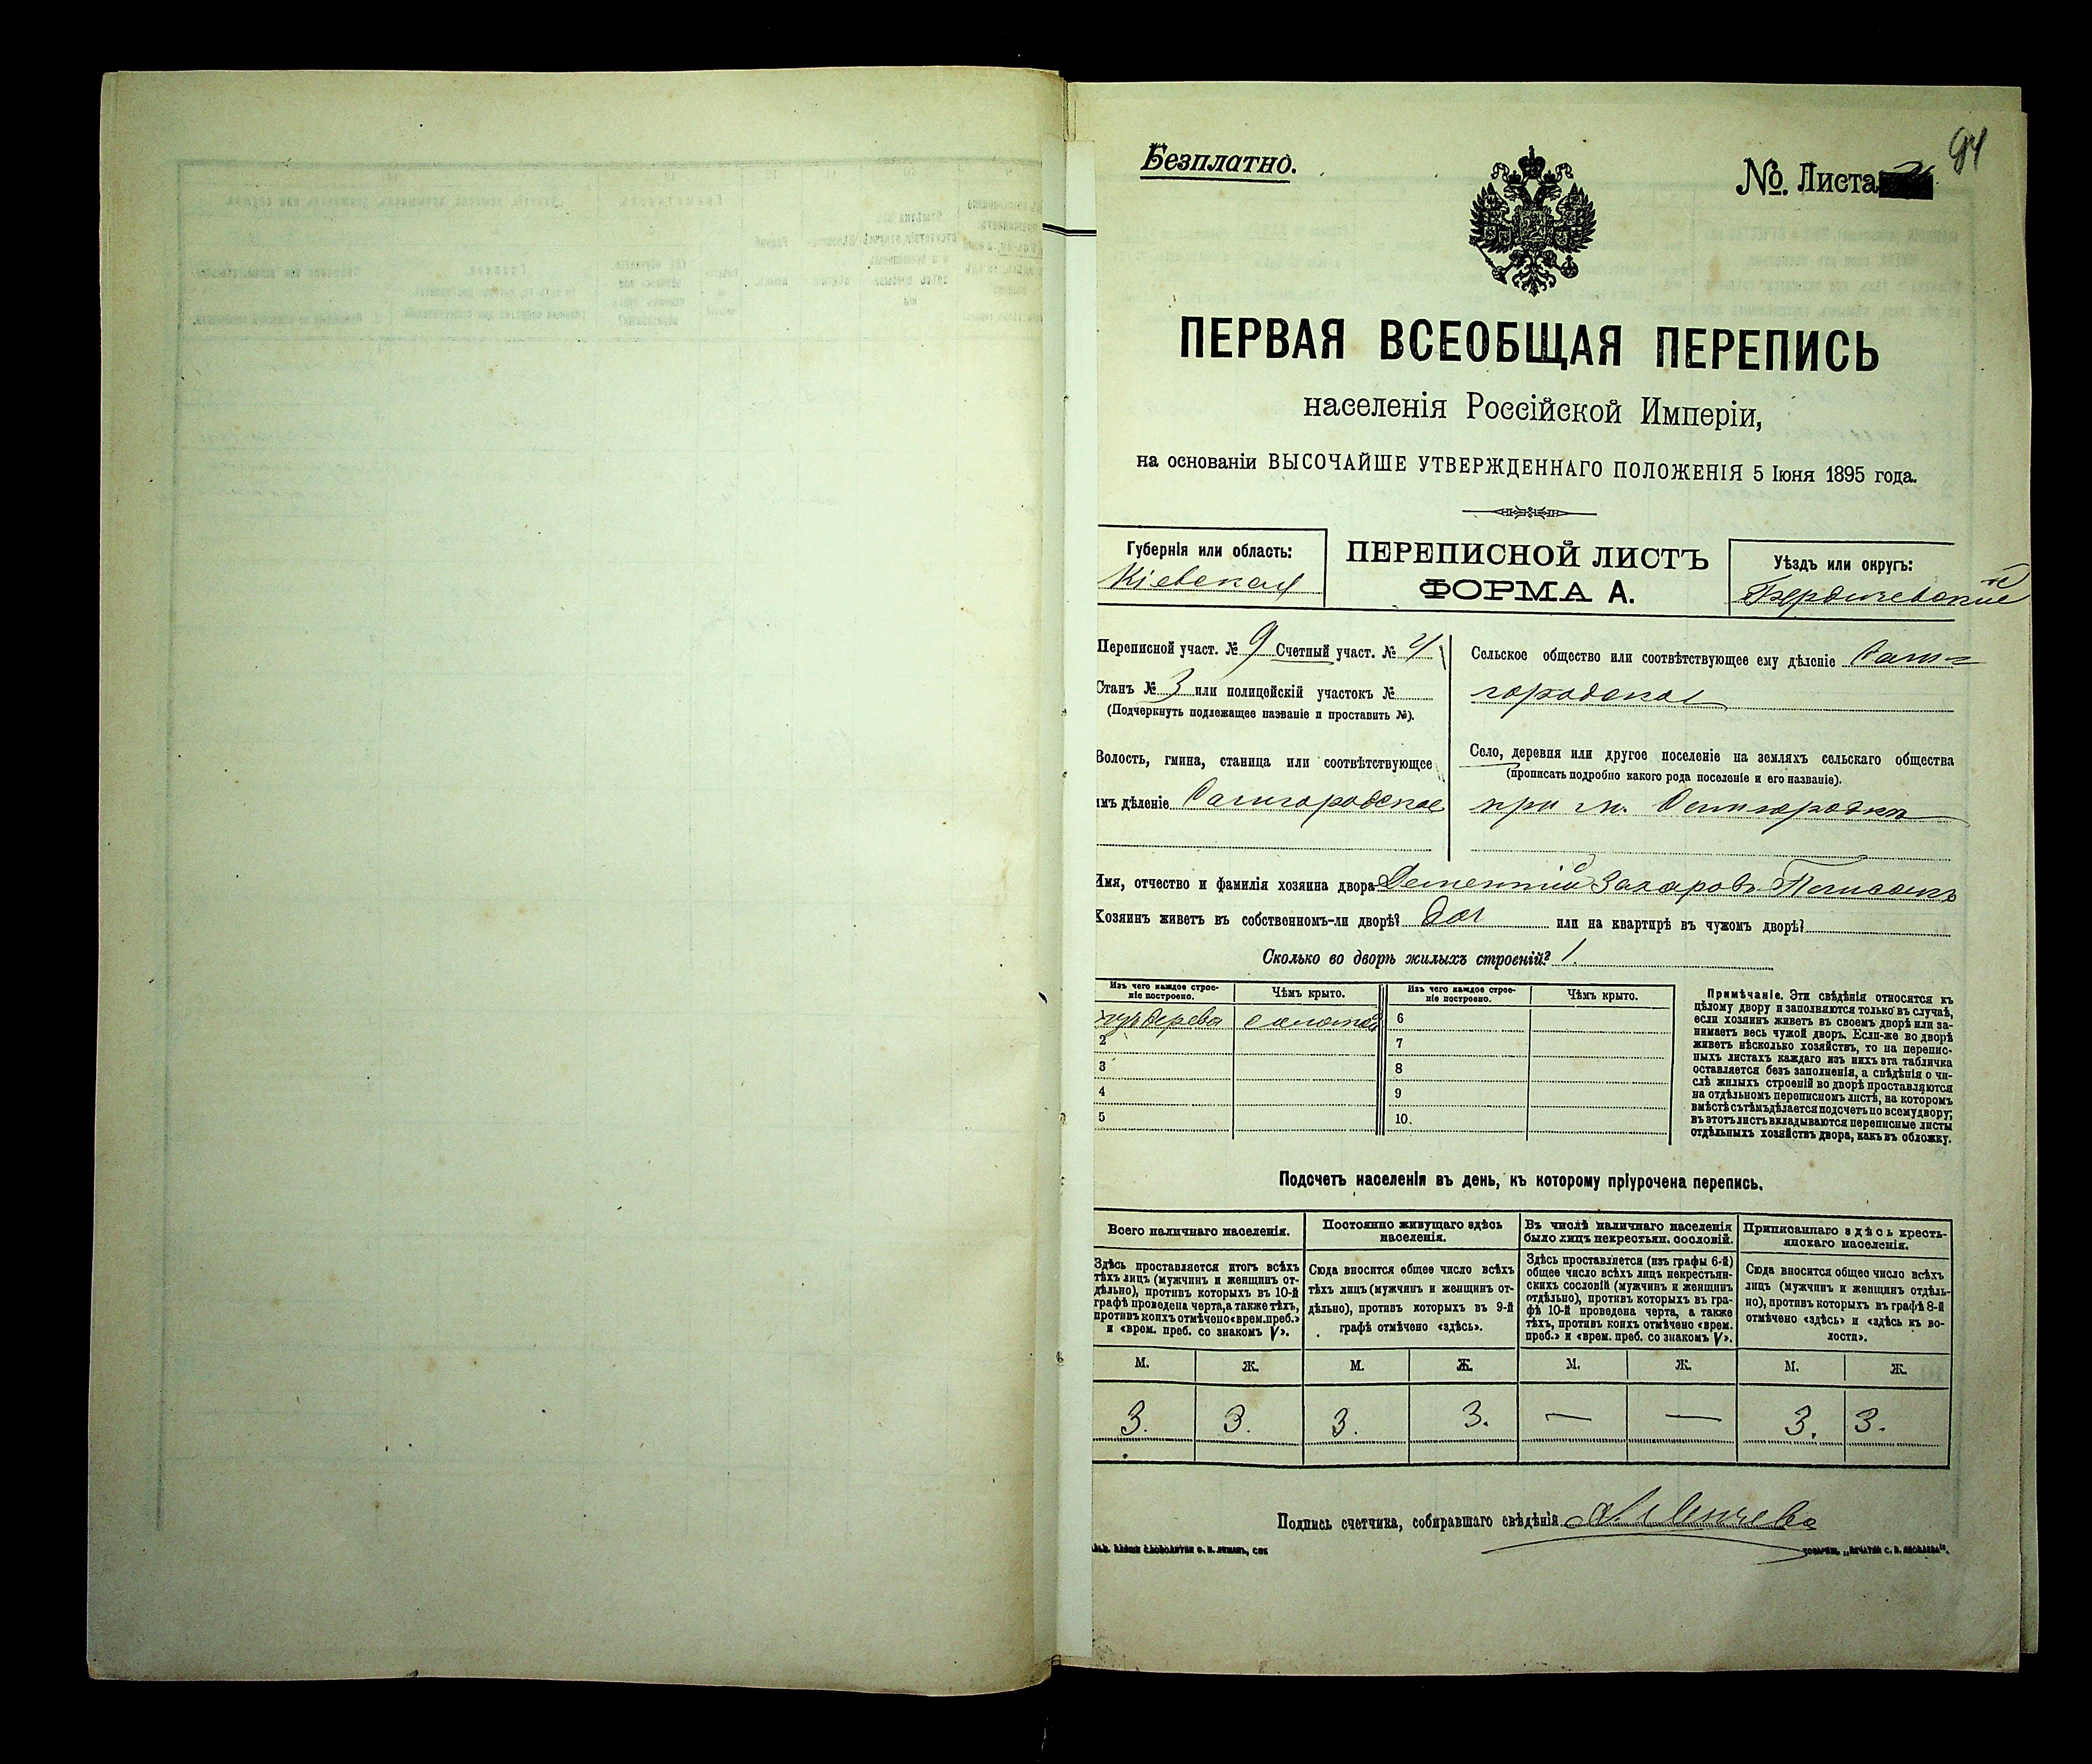 94
Безплатно.
№. Листа
ПЕРВАЯ ВСЕОБЩАЯ ПЕРЕПИСЬ
населенія Россійской Имперіи,
на основаніи ВЫСОЧАЙШЕ УТВЕРЖДЕННАГО ПОЛОЖЕНІЯ 5 Іюня 1895 года.
Губернія или область:
Кіевская
ПЕРЕПИСНОЙ ЛИСТЪ
ФОРМА А.
Уѣздъ или округъ:
Бердичевскій
Переписной участ. № 9 Счетный участ. № 4
Станъ № 3 или полицейскій участокъ №
(Подчеркнуть подлежащее названіе и проставить №).
Волость, гмина, станица или соотвѣтствующее
имъ дѣленіе Самгородское
Сельское общество или соотвѣтствующее ему дѣленіе Сам-
городское
Село, деревня или другое поселеніе на земляхъ сельскаго общества
(прописать подробно какого рода поселеніе и его названіе).
при м. Самгородкѣ
Имя, отчество и фамилія хозяина двора Дементій Захаровъ
Хозяинъ живетъ въ собственномъ-ли дворѣ? да или на квартирѣ въ чужомъ дворѣ?
Сколько во дворѣ жилыхъ строеній? 1.
Изъ чего каждое строе-
ніе построено.
Чѣмъ крыто.
Изъ чего каждое строе-
ніе построено.
Чѣмъ крыто.
изъ дерева соломой 6
2 7
3 8
4 9
5 10.
Примѣчаніе. Эти свѣдѣнія относятся къ
цѣлому двору и заполняются только въ случаѣ,
если хозяинъ живетъ въ своемъ дворѣ или за-
нимаетъ весь чужой дворъ. Если-же во дворѣ
живетъ нѣсколько хозяйствъ, то на перепис-
ныхъ листахъ каждаго изъ нихъ эта табличка
оставляется безъ заполненія, а свѣдѣнія о чи-
слѣ жилыхъ строеній во дворѣ проставляются
на отдѣльномъ переписномъ листѣ, на которомъ
вмѣстѣ съ тѣмъ дѣлается подсчетъ по всему двору;
въ этотъ листъ вкладываются переписные листы
отдѣльныхъ хозяйствъ двора, какъ въ обложку.
Подсчетъ населенія въ день, къ которому пріурочена перепись.
Всего наличнаго населенія.
Здѣсь проставляется итогъ всѣхъ
тѣхъ лицъ (мужчинъ и женщинъ от-
дѣльно), противъ которыхъ въ 10-й
графѣ проведена черта, а также тѣхъ,
противъ коихъ отмѣчено «врем. преб.»
и «врем. преб. со знакомъ V».
Постоянно живущаго здѣсь
населенія.
Сюда вносится общее число всѣхъ
тѣхъ лицъ (мужчинъ и женщинъ от-
дѣльно), противъ которыхъ въ 9-й
графѣ отмѣчено «здѣсь».
Въ числѣ наличнаго населенія
было лицъ некрестьян. сословій.
Здѣсь проставляется (изъ графы 6-й)
общее число всѣхъ лицъ некрестьян-
скихъ сословій (мужчинъ и женщинъ
отдѣльно), противъ которыхъ въ гра-
фѣ 10-й проведена черта, а также
тѣхъ, противъ коихъ отмѣчено «врем.
преб.» и «врем. преб. со знакомъ V».
Приписаннаго здѣсь кресть-
янскаго населенія.
Сюда вносится общее число всѣхъ
лицъ (мужчинъ и женщинъ отдѣль-
но), противъ которыхъ въ графѣ 8-й
отмѣчено «здѣсь» и «здѣсь къ во-
лости».
М. Ж. М. Ж. М. Ж. М. Ж.
3. 3. 3. 3. — — 3. 3.
Подпись счетчика, собиравшаго свѣдѣнія